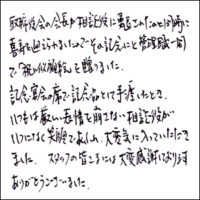 取締役会の会長が相談役に勇退されたのと同時に
喜寿を迎えられましたのでその記念にと管理職一同
で「祝い似顔絵」を贈りました。
記念宴会の席で記念品として手渡したとき、
いつもは厳しい表情を崩さない相談役が
いつになく笑顔であふれ、大変気に入っていただき
ました。スタッフの皆さまには大変感謝しております
ありがとうございました。